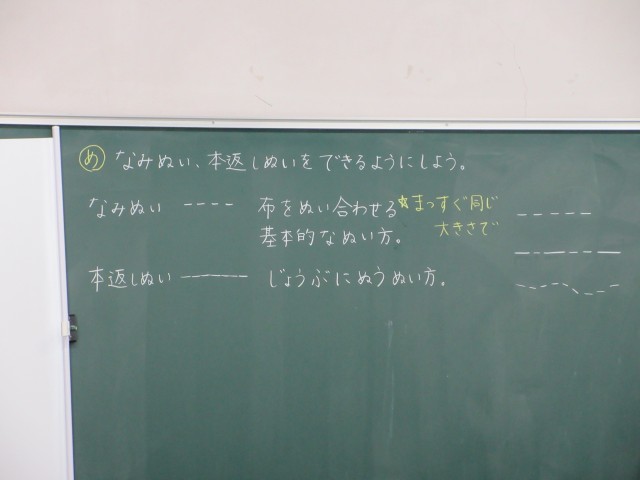 め なみぬい、本返しぬいをできるようにしよう。
なみぬい ---- 布をぬい合わせる ☆まっすぐ同じ
基本的なぬい方。 大きさで
本返しぬい ―――― じょうぶにぬうぬい方。